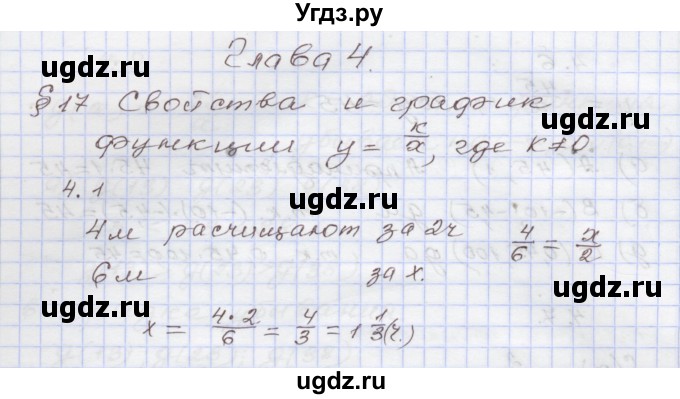 Угдз.ру
Глава 4.
ugdz.ru ugdz.ru
§ 17 Свойства и график
функции y = к/x, где к≠0.
4.1
4м расчищают за 2ч 4/6 = x/2
6м за x.
ugdz.ru ugdz.ru
x = 4·2/6 = 4/3 = 1 1/3(ч.)
ugdz.ru